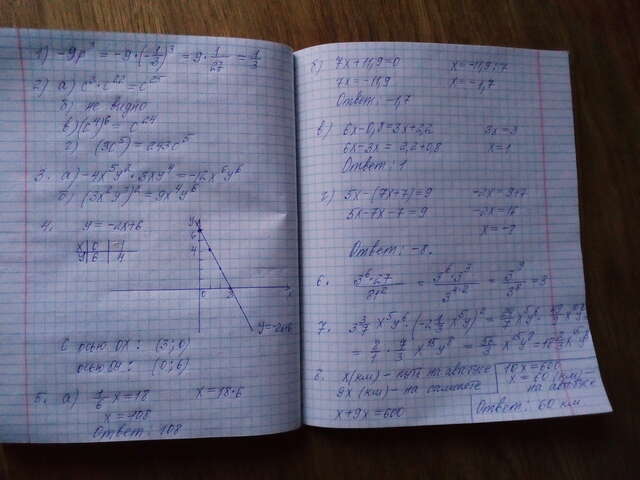 1) -9p³ = -9·(-1/3)³ = 9·1/27 = 1/3
2) а) c³·c²² = c²⁵
б) не видно
в) (c⁴)⁶ = c²⁴
г) (3c)⁵ = 243c⁵
3. а) -4x⁵y²·3xy⁴ = -12x⁶y⁶
б) (3x²y³)² = 9x⁴y⁶
4. y = -2x+6
x 0 1
y 6 4
y
6
4
0 3 x
y=-2x+6
С осью OX: (3; 0)
осью OY: (0; 6)
5. а) 1/6 x = 18 x = 18·6
x = 108
Ответ: 108
б) 7x + 11,9 = 0 x = -11,9:7
7x = -11,9 x = -1,7
Ответ: -1,7
в) 6x - 0,8 = 3x + 2,2 3x = 3
6x - 3x = 2,2 + 0,8 x = 1
Ответ: 1
г) 5x - (7x+7) = 9 -2x = 9+7
5x - 7x - 7 = 9 -2x = 16
x = -8
Ответ: -8.
6. 3⁶·27 / 81² = 3⁶·3³ / 3⁴·² = 3⁹/3⁸ = 3
7.
8. x (км) - путь на автобусе
9x (км) - на самолете
x + 9x = 600
10x = 600
x = 60 (км) -
на автобусе
Ответ: 60 км